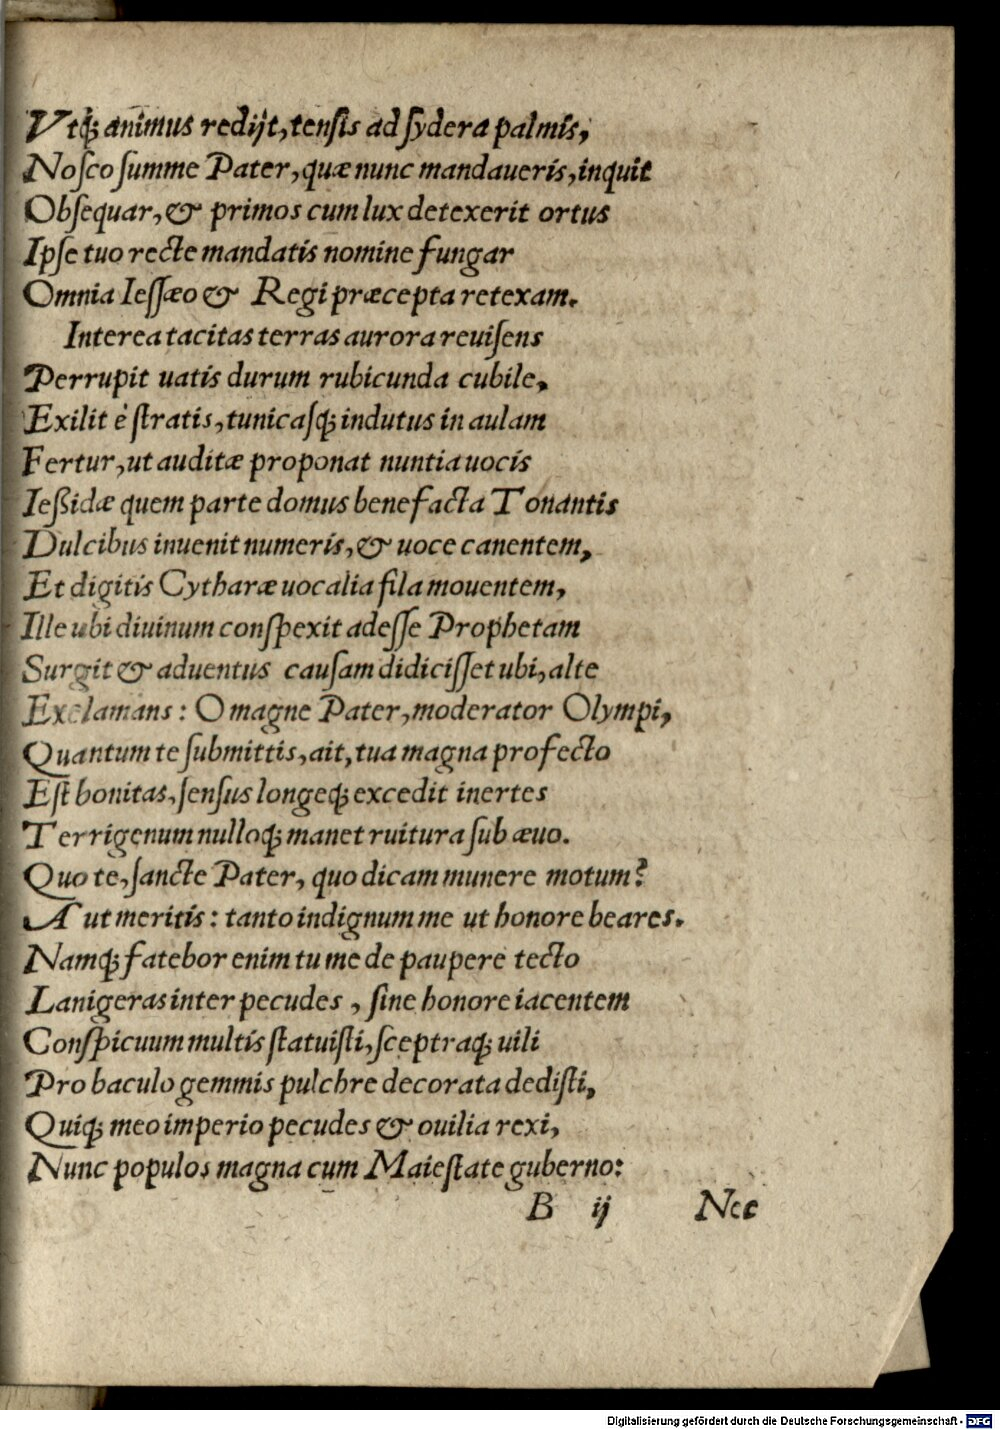 Vtq́; animus redijt, tenſis ad ſydera palmis,
Noſco ſumme Pater, quæ nunc mandaueris, inquit
Obſequar, & primos cum lux detexerit ortus
Ipſe tuo recte mandatis nomine fungar
Omnia Ieſſæo & Regi præcepta retexam.
Interea tacitas terras aurora reuiſens
Perrupit uatis durum rubicunda cubile,
Exilit è ſtratis, tunicaſq́; indutus in aulam
Fertur, ut auditæ proponat nuntia uocis
Ießidæ quem parte domus benefacta Tonantis
Dulcibus inuenit numeris, & uoce canentem,
Et digitis Cytharæ uocalia fila mouentem,
Ille ubi diuinum conſpexit adeſſe Prophetam
Surgit & aduentus cauſam didiciſſet ubi, alte
Exclamans: O magne Pater, moderator Olympi,
Quantum te ſubmittis, ait, tua magna profecto
Eſt bonitas, ſenſus longeq́; excedit inertes
Terrigenum nulloq́; manet ruitura ſub æuo.
Quo te, ſancte Pater, quo dicam munere motum?
Aut meritis: tanto indignum me ut honore beares.
Namq́; fatebor enim tu me de paupere tecto
Lanigeras inter pecudes, ſine honore iacentem
Conſpicuum multis ſtatuiſti, ſceptraq́; uili
Pro baculo gemmis pulchre decorata dediſti,
Quiq́; meo imperio pecudes & ouilia rexi,
Nunc populos magna cum Maieſtate guberno:
B ij Nec
Digitalisierung gefördert durch die Deutsche Forschungsgemeinschaft - DFG